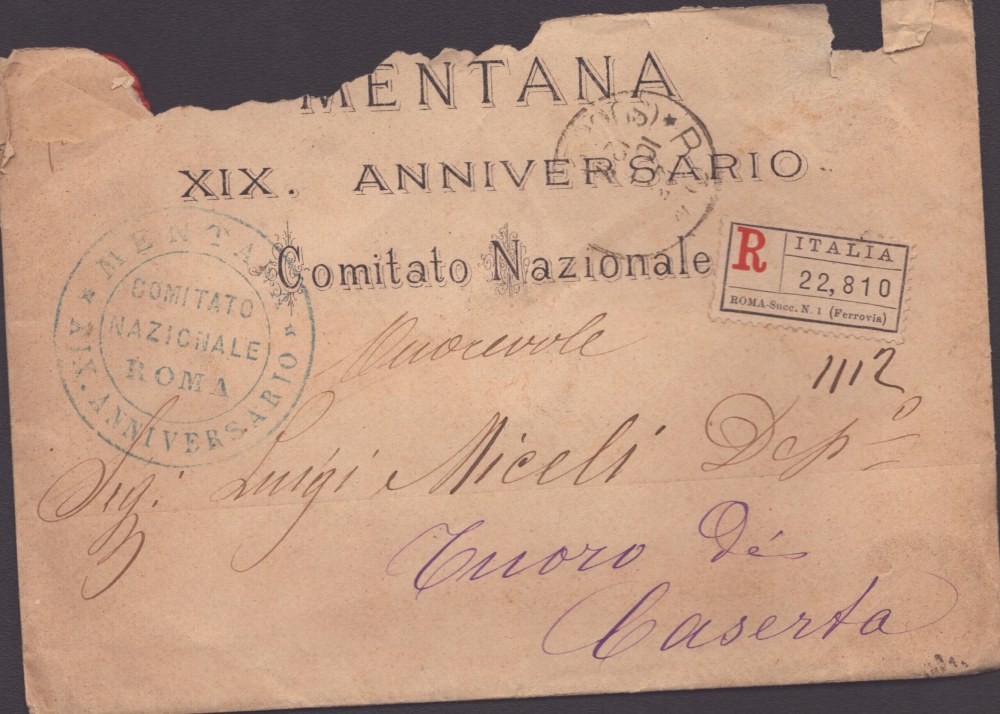 MENTANA
XIX. ANNIVERSARIO
Comitato Nazionale
R
ITALIA
22,810
ROMA-Succ. N. 1 (Ferrovia)
1112
★ MENTANA ★
XIX. ANNIVERSARIO
COMITATO
NAZIONALE
ROMA
Onorevole
Sig. Luigi Miceli Depº
Tuoro di
Caserta